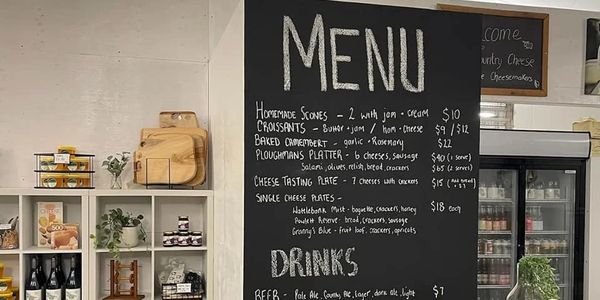 MENU
HOMEMADE SCONES - 2 with jam + cream $10
CROISSANTS - Butter + jam / ham + cheese $9 / $12
BAKED CAMEMBERT - garlic + Rosemary $22
PLOUGHMANS PLATTER - 6 cheeses, sausage $40 (1 serve)
Salami, olives, relish, bread, crackers $65 (2 serves)
CHEESE TASTING PLATE - 7 cheeses with crackers $15
SINGLE CHEESE PLATES
Mist - baguette, crackers, honey $18 each
Powlett Reserve - bread, crackers, sausage
Granny's Blue - fruit loaf, crackers, apricots
DRINKS
BEER - Pale Ale, lager, dark ale, light $7
Country Cheese
Cheesemakers